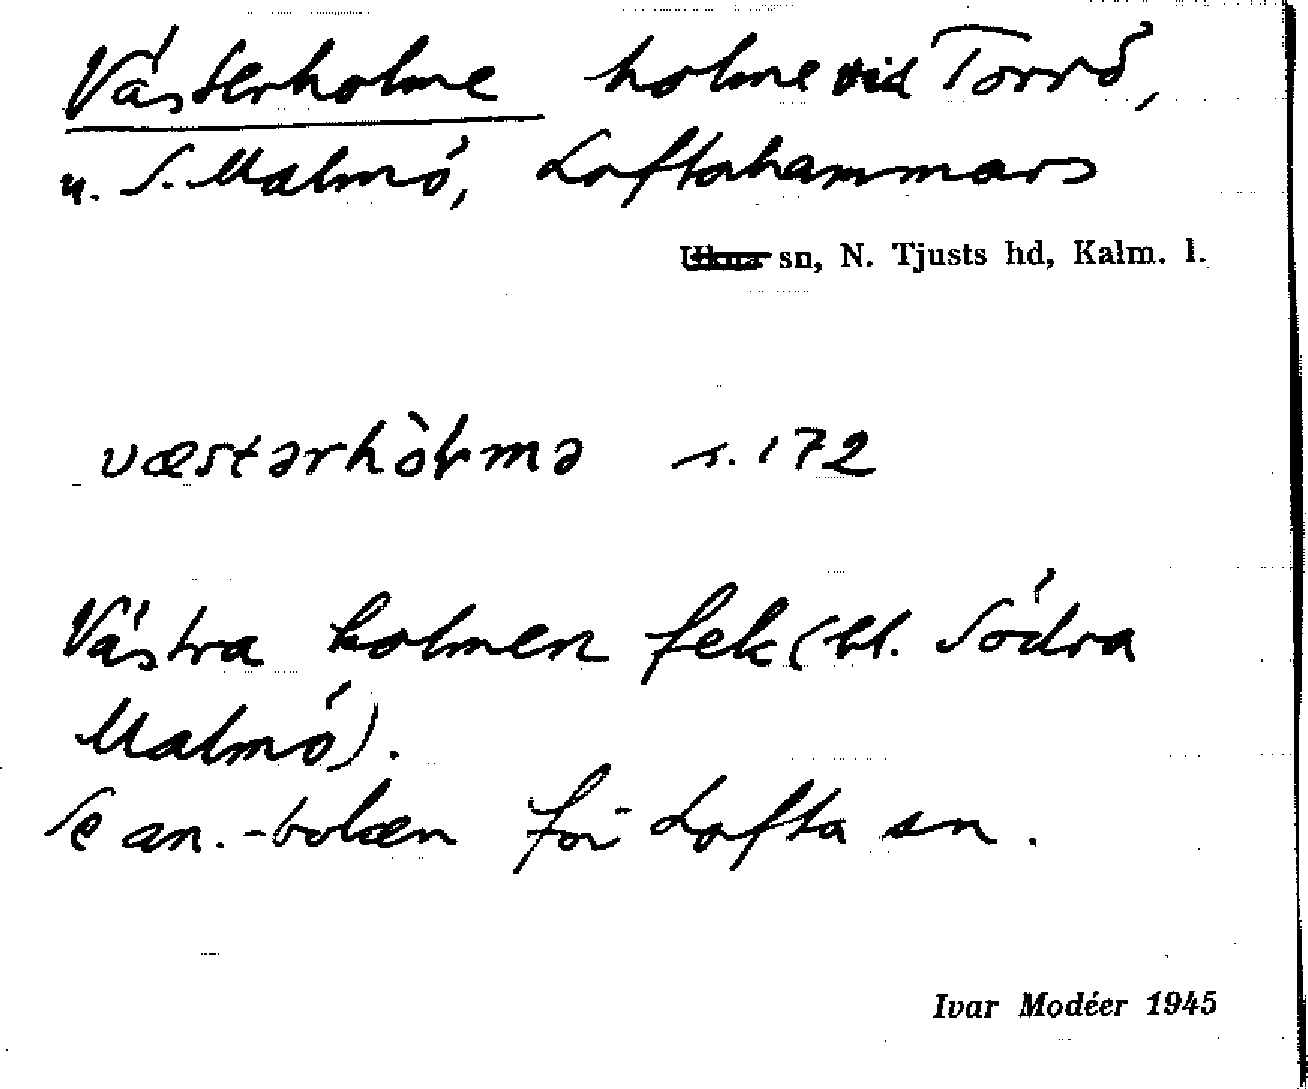 Västerholme holme vid Torrö,
u. S. Malmö, Loftahammars
Ukna sn, N. Tjusts hd, Kalm. l.
væstərhòlmə s. 172
Västra holmen fek (bl. Södra
Malmö).
Se an.-boken för Lofta sn.
Ivar Modéer 1945